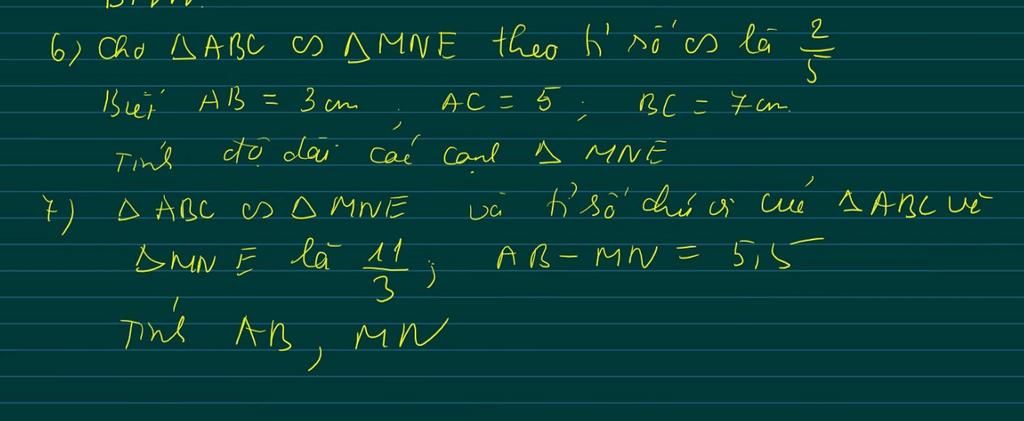 6) Cho △ABC ∽ △MNE theo tỉ số ∽ là 2/5
Biết AB = 3cm, AC = 5; BC = 7cm.
Tính độ dài các cạnh △ MNE
7) △ ABC ∽ △ MNE và tỉ số chu vi của △ABC và
△MNE là 11/3; AB - MN = 5,5
Tính AB, MN